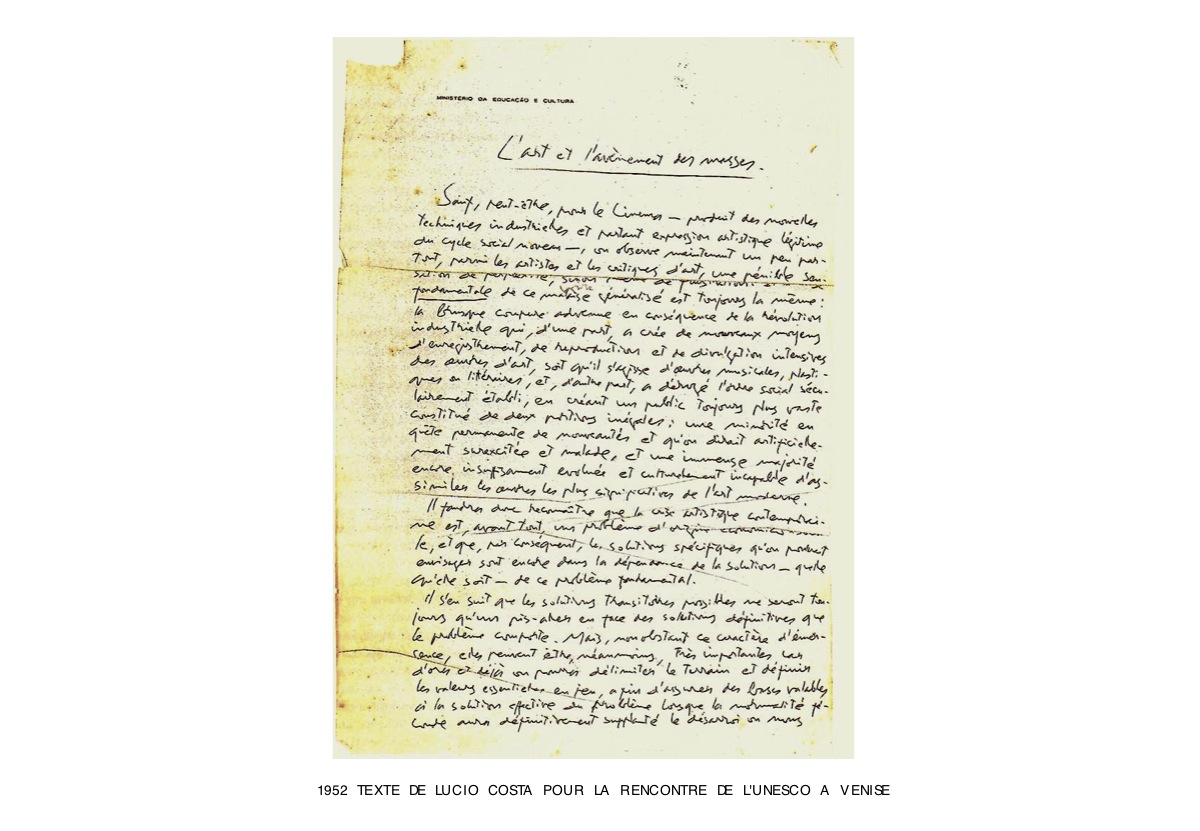 MINISTÉRIO DA EDUCAÇÃO E CULTURA
L'art et l'avènement des masses.
Sauf, peut-être, pour le Cinema — produit des nouvelles
techniques industrielles et partant expression artistique légitime
du cycle social nouveau —, on observe maintenant un peu par-
tout, parmi les artistes et les critiques d'art, une pénible sen-
sation de perplexité, sinon même de
fondamentale de ce malaise généralisé est toujours la même:
la brusque coupure advenue en conséquence de la révolution
industrielle qui, d'une part, a crée de nouveaux moyens
d'enregistrement, de reproduction et de divulgation intensives
des œuvres d'art, soit qu'il s'agisse d'œuvres musicales, plasti-
ques ou litéraires, et, d'autre part, a dérogé l'ordre social sécu-
lairement établi, en créant un public toujours plus vaste
constitué de deux portions inégales: une minorité en
quête permanente de nouveautés et qu'on dirait artificielle-
ment surexcitée et malade, et une immense majorité
encore insuffisament evoluée et culturalement incapable d'as-
similer les œuvres les plus significatives de l'art moderne.
Il faudra donc reconnaître que la crise artistique contemporai-
ne est, avant tout, un problème d'origine
le, et que, par conséquent, les solutions spécifiques qu'on pourrait
envisager sont encore dans la dépendance de la solution — quelle
qu'elle soit — de ce problème fondamental.
Il s'en suit que les solutions transitoires possibles ne seront tou-
jours qu'un pis-aller en face des solutions définitives que
le problème comporte. Mais, nonobstant ce caractère d'émer-
gence, elles peuvent être, néanmoins, très importantes car
d'ores et déjà on pourra délimiter le terrain et définir
les valeurs essentielles en jeu, afin d'assurer des bases valables
à la solution effective du problème lorsque la normalité fé-
conde aura définitivement supplanté le désarroi où nous
1952 TEXTE DE LUCIO COSTA POUR LA RENCONTRE DE L'UNESCO A VENISE